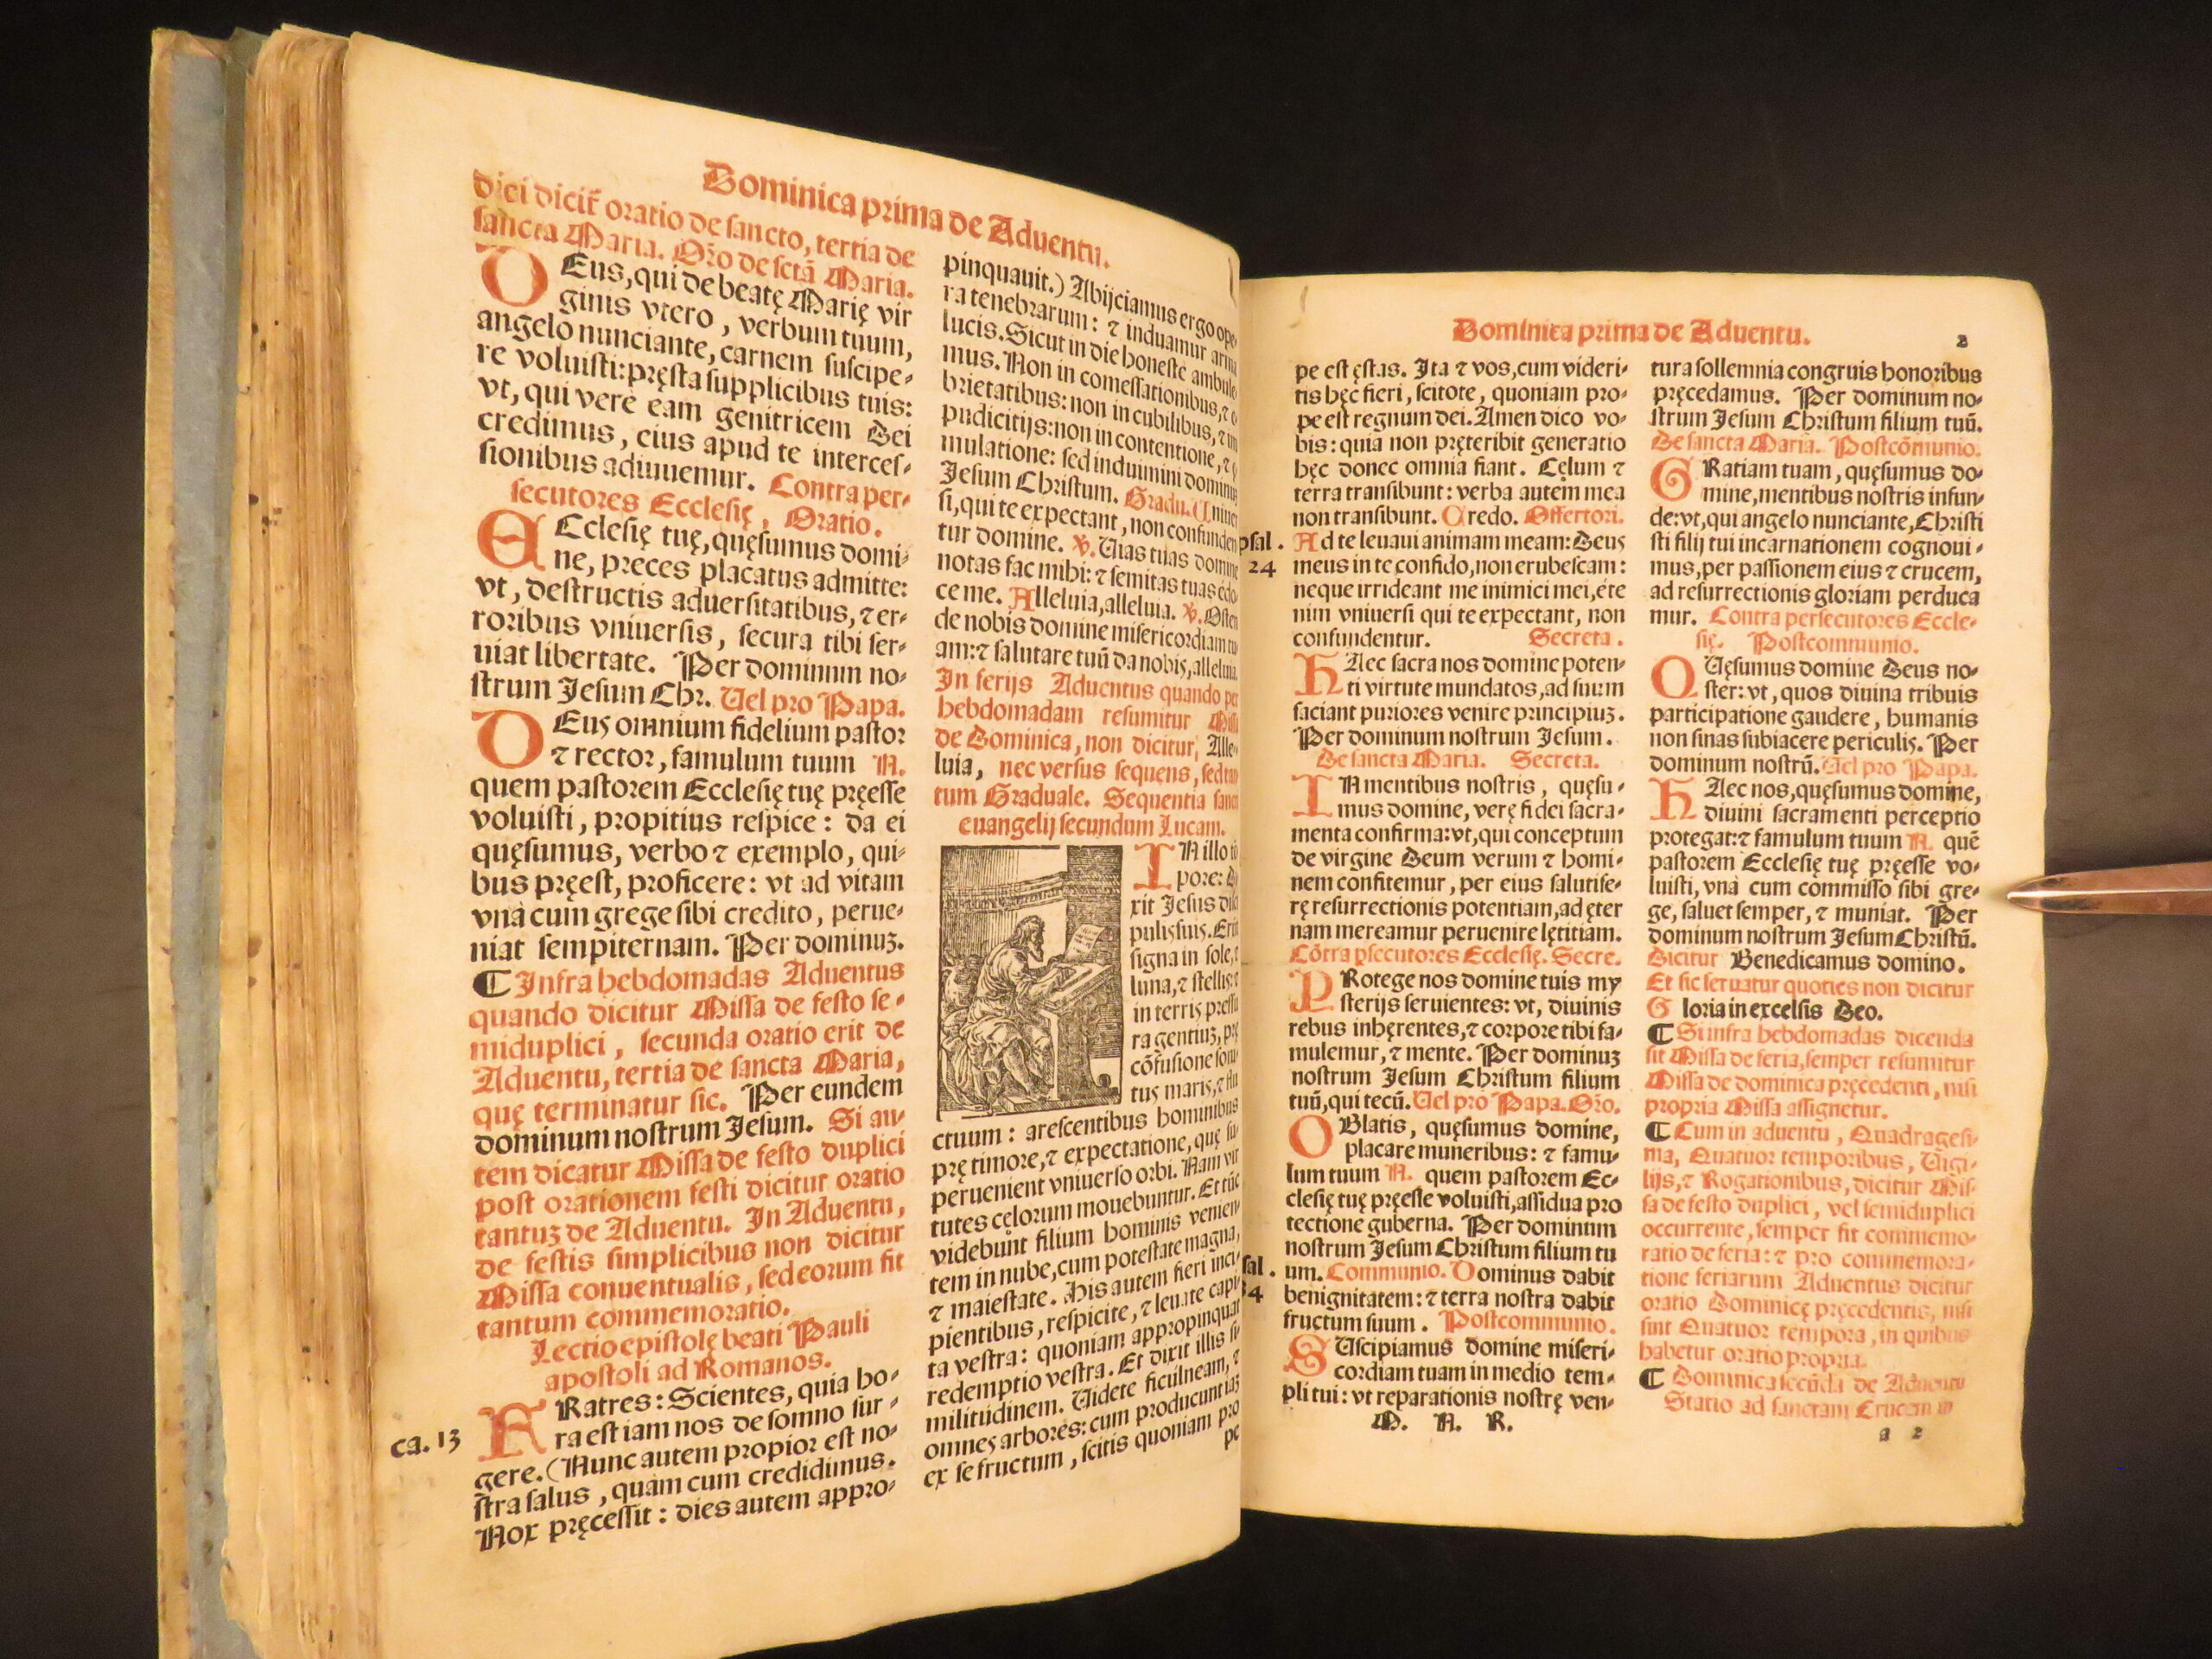 Dominica prima de Aduentu.
diei dicit̃ oratio de sancto, tertia de
sancta Maria. Or̃o de sctã Maria.
DEus, qui de beatę Marię vir
ginis vtero, verbum tuum,
angelo nunciante, carnem suscipe-
re voluisti: pręsta supplicibus tuis:
vt, qui vere eam genitricem Dei
credimus, eius apud te interces-
sionibus adiuuemur. Contra per-
secutores Ecclesię, Oratio.
ECclesię tuę, quęsumus domi-
ne, preces placatus admitte:
vt, destructis aduersitatibus, ⁊ er-
roribus vniuersis, secura tibi ser-
uiat libertate. Per dominum no-
strum Jesum Chr. Uel pro Papa.
DEus omnium fidelium pastor
⁊ rector, famulum tuum N.
quem pastorem Ecclesię tuę pręesse
voluisti, propitius respice: da ei
quęsumus, verbo ⁊ exemplo, qui-
bus pręest, proficere: vt ad vitam
vnà cum grege sibi credito, perue-
niat sempiternam. Per dominuꝫ.
¶ Infra hebdomadas Aduentus
quando dicitur Missa de festo se-
miduplici, secunda oratio erit de
Aduentu, tertia de sancta Maria,
quę terminatur sic. Per eundem
dominum nostrum Jesum. Si au-
tem dicatur Missa de festo duplici
post orationem festi dicitur oratio
tantuꝫ de Aduentu. In Aduentu,
de festis simplicibus non dicitur
Missa conuentualis, sed eorum fit
tantum commemoratio.
Lectio epistolę beati Pauli
apostoli ad Romanos.
ca. 13
FRatres: Scientes, quia ho-
ra est iam nos de somno sur-
gere. (Nunc autem propior est no-
stra salus, quàm cum credidimus.
Nox pręcessit: dies autem appro-
pinquauit.) Abijciamus ergo ope-
ra tenebrarum: ⁊ induamur arma
lucis. Sicut in die honestè ambule-
mus. Non in comessationibus, ⁊ e-
brietatibus: non in cubilibus, ⁊ im
pudicitijs: non in contentione, ⁊ ę
mulatione: sed induimini dominum
Jesum Christum. Gradu. Uniuer
si, qui te expectant, non confunden
tur domine. ℣. Uias tuas domine
notas fac mihi: ⁊ semitas tuas edo
ce me. Alleluia, alleluia. ℣. Osten
de nobis domine misericordiam tu
am: ⁊ salutare tuũ da nobis, alleluia.
In ferijs Aduentus quando per
hebdomadam resumitur Missa
de Dominica, non dicitur, Alle-
luia, nec versus sequens, sed tan
tum Graduale. Sequentia sancti
euangelij secundum Lucam.
IN illo tẽ
pore: Di
xit Jesus disci
pulis suis. Erũt
signa in sole, ⁊
luna, ⁊ stellis: ⁊
in terris pressu
ra gentiuꝫ, prę
cõfusione soni
tus maris, ⁊ flu
ctuum: arescentibus hominibus
prę timore, ⁊ expectatione, quę su
peruenient vniuerso orbi. Nam vir
tutes cęlorum mouebuntur. Et tũc
videbunt filium hominis venien
tem in nube, cum potestate magna,
⁊ maiestate. His autem fieri inci-
pientibus, respicite, ⁊ leuate capi
ta vestra: quoniam appropinquat
redemptio vestra. Et dixit illis si
militudinem. Uidete ficulneam, ⁊
omnes arbores: cum producunt iaꝫ
ex se fructum, scitis quoniam pro
pe
Dominica prima de Aduentu.
2
pe est ęstas. Ita ⁊ vos, cum videri-
tis hęc fieri, scitote, quoniam pro-
pe est regnum dei. Amen dico vo-
bis: quia non pręteribit generatio
hęc donec omnia fiant. Cęlum ⁊
terra transibunt: verba autem mea
non transibunt. Credo. Offertori.
psal.
24
Ad te leuaui animam meam: Deus
meus in te confido, non erubescam:
neque irrideant me inimici mei, ete
nim vniuersi qui te expectant, non
confundentur. Secreta.
HAec sacra nos domine poten-
ti virtute mundatos, ad suum
faciant puriores venire principiuꝫ.
Per dominum nostrum Jesum.
De sancta Maria. Secreta.
IN mentibus nostris, quęsu-
mus domine, verę fidei sacra-
menta confirma: vt, qui conceptum
de virgine Deum verum ⁊ homi-
nem confitemur, per eius salutife-
rę resurrectionis potentiam, ad ęter
nam mereamur peruenire lętitiam.
Cõtra psecutores Ecclesię. Secre.
PRotege nos domine tuis my
sterijs seruientes: vt, diuinis
rebus inhęrentes, ⁊ corpore tibi fa-
mulemur, ⁊ mente. Per dominuꝫ
nostrum Jesum Christum filium
tuũ, qui tecũ. Uel pro Papa. Or̃o.
OBlatis, quęsumus domine,
placare muneribus: ⁊ famu-
lum tuum N. quem pastorem Ec-
clesię tuę pręesse voluisti, assidua pro
tectione guberna. Per dominum
nostrum Jesum Christum filium tu
um. Communio. Dominus dabit
benignitatem: ⁊ terra nostra dabit
fructum suum. Postcommunio.
SUscipiamus domine miseri-
cordiam tuam in medio tem-
pli tui: vt reparationis nostrę ven-
M. N. R.
tura sollemnia congruis honoribus
pręcedamus. Per dominum no-
strum Jesum Christum filium tuũ.
De sancta Maria. Postcõmunio.
GRatiam tuam, quęsumus do-
mine, mentibus nostris infun-
de: vt, qui angelo nunciante, Christi
sti filij tui incarnationem cognoui-
mus, per passionem eius ⁊ crucem,
ad resurrectionis gloriam perduca
mur. Contra persecutores Eccle-
się. Postcommunio.
QUęsumus domine Deus no-
ster: vt, quos diuina tribuis
participatione gaudere, humanis
non sinas subiacere periculis. Per
dominum nostrũ. Uel pro Papa.
HAec nos, quęsumus domine,
diuini sacramenti perceptio
protegat: ⁊ famulum tuum N. quẽ
pastorem Ecclesię tuę pręesse vo-
luisti, vnà cum commisso sibi gre-
ge, saluet semper, ⁊ muniat. Per
dominum nostrum Jesum Christũ.
Dicitur Benedicamus domino.
Et sic seruatur quoties non dicitur
Gloria in excelsis Deo.
¶ Si infra hebdomadas dicenda
sit Missa de feria, semper resumitur
Missa de dominica pręcedenti, nisi
propria Missa assignetur.
¶ Cum in aduentu, Quadragesi-
ma, Quatuor temporibus, Uigi-
lijs, ⁊ Rogationibus, dicitur Mis-
sa de festo duplici, vel semiduplici
occurrente, semper fit commemo-
ratio de feria: ⁊ pro commemora-
tione feriarum Aduentus dicitur
oratio Dominicę pręcedentis, nisi
sint Quatuor tempora, in quibus
habetur oratio propria.
¶ Dominica secũda de Aduentu
Statio ad sanctam Crucem in
a 2